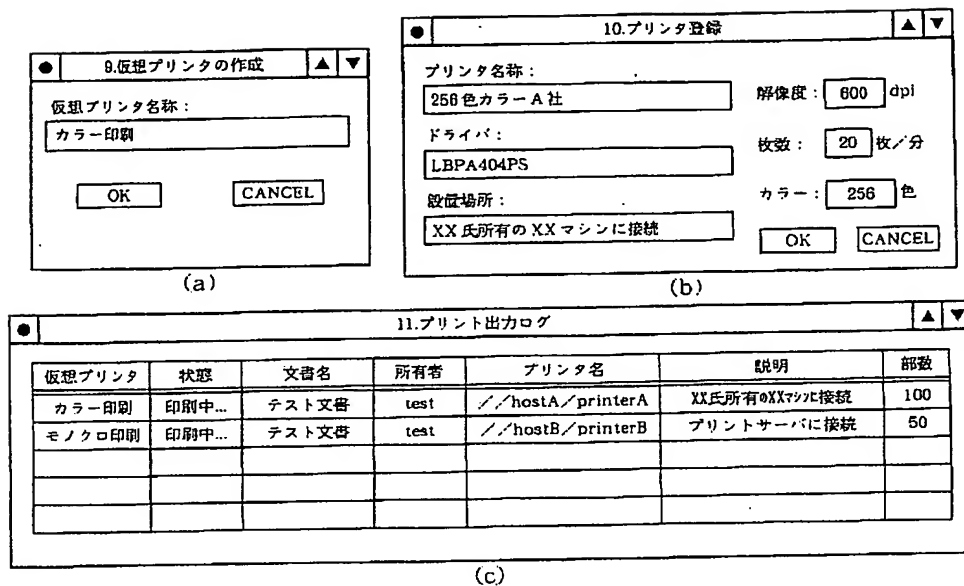 9.仮想プリンタの作成
仮想プリンタ名称:
カラー印刷
OK CANCEL
(a)
10.プリンタ登録
プリンタ名称:
256色カラーA社
ドライバ:
LBPA404PS
設置場所:
XX氏所有のXXマシンに接続
解像度: 600 dpi
枚数: 20 枚/分
カラー: 256 色
OK CANCEL
(b)
11.プリント出力ログ
仮想プリンタ 状態 文書名 所有者 プリンタ名 説明 部数
カラー印刷 印刷中... テスト文書 test //hostA/printerA XX氏所有のXXマシンに接続 100
モノクロ印刷 印刷中... テスト文書 test //hostB/printerB プリントサーバに接続 50
(c)